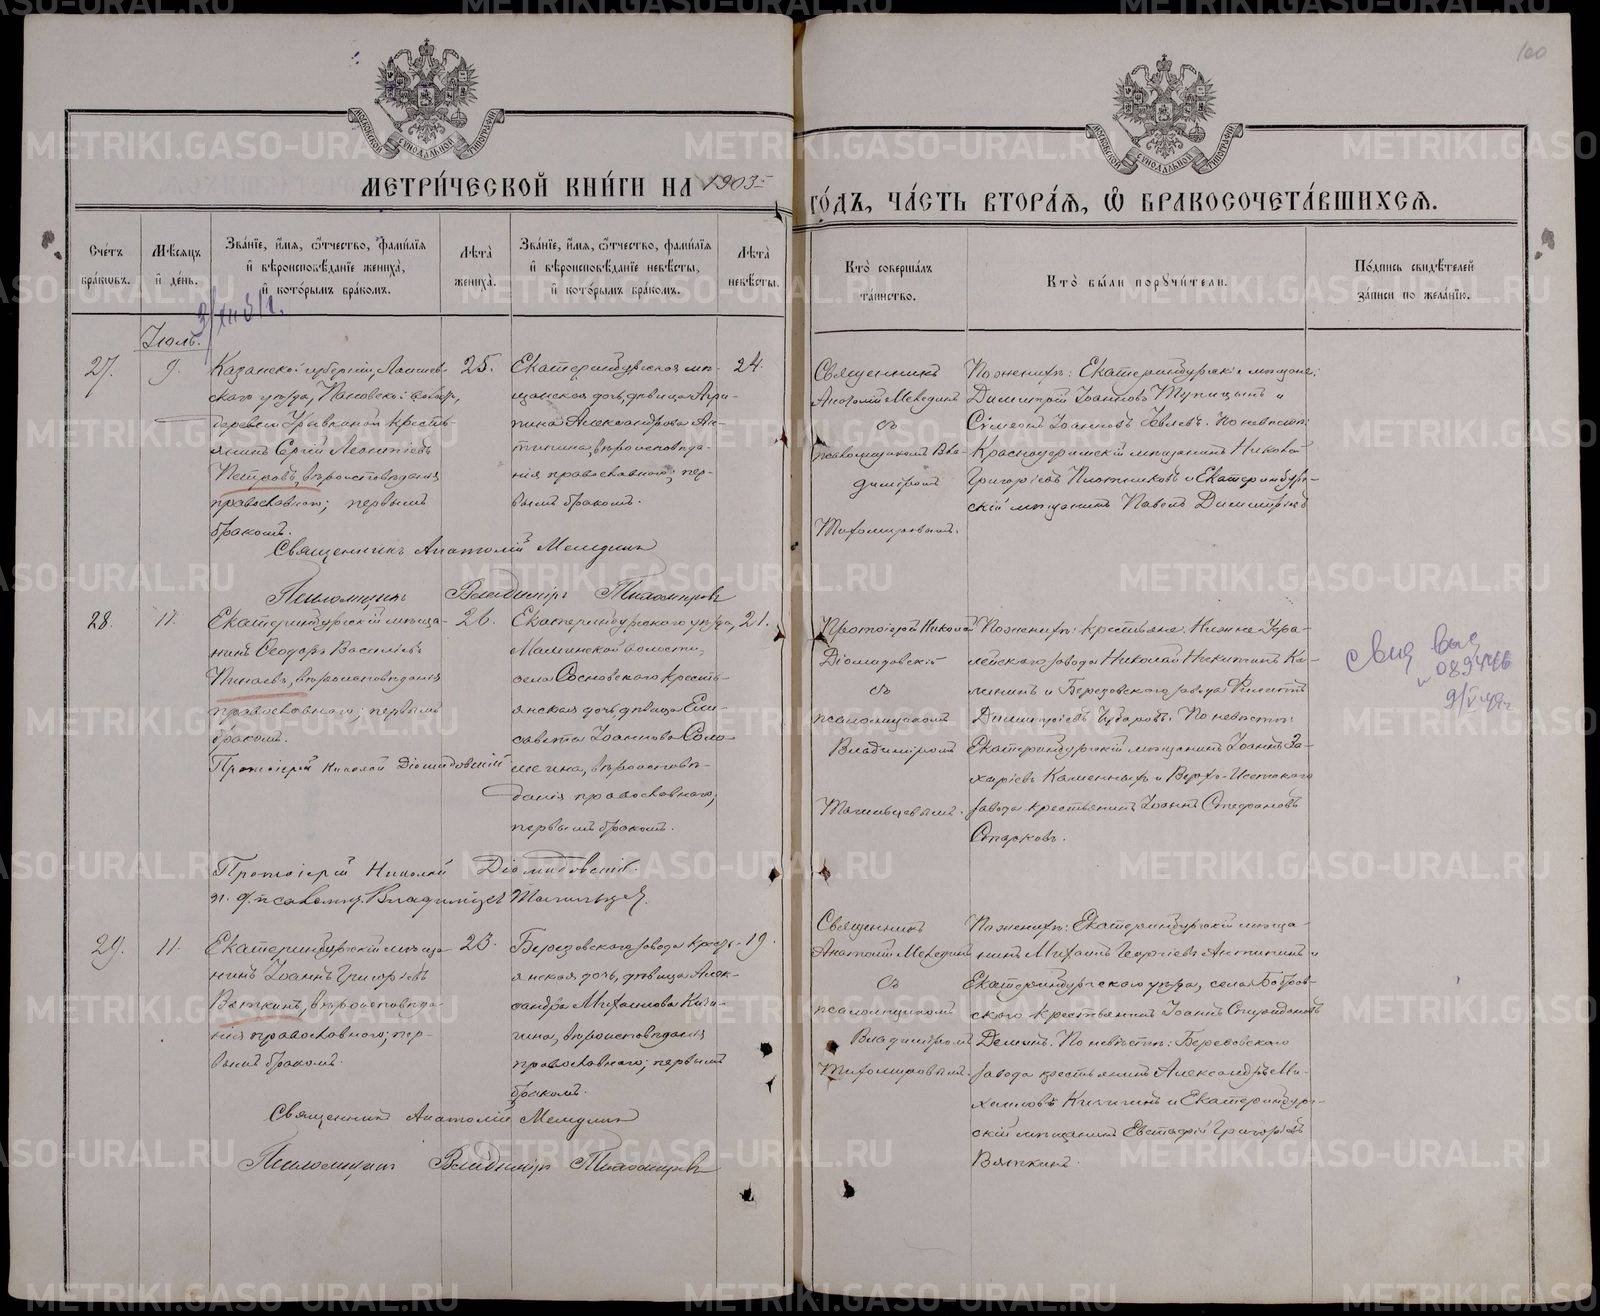 100
МОСКОВСКОЙ СѴНОДАЛЬНОЙ ТИПОГРАФІИ
МОСКОВСКОЙ СѴНОДАЛЬНОЙ ТИПОГРАФІИ
МЕТРИ́ЧЕСКОЙ КНИ́ГИ НА 1903 ГО́ДЪ, ЧА́СТЬ ВТОРА́Я, Ѡ БРАКОСОЧЕТА́ВШИХСЯ.
Сче́тъ бра́кѡвъ.
Мѣ́сяцъ и де́нь.
Зва́нїе, и́мя, ѻ́тчество, фами́лїя и вѣроисповѣ́данїе жениха̀, и кото́рымъ бра́комъ.
Лѣ́та жениха̀.
Зва́нїе, и́мя, ѻ́тчество, фами́лїя и вѣроисповѣ́данїе невѣ́сты, и кото́рымъ бра́комъ.
Лѣ́та невѣ́сты.
Кто̀ соверша́лъ та́инство.
Кто̀ бы́ли порꙋчи́тели.
По́дпись свидѣ́телей за́писи по жела́нїю.
Іюль.
27.
9.
Казанской губерніи, Лаишев-
скаго уѣзда,
деревни
крестья-
янинъ Сергій Леонтіевъ
Петровъ, вѣроисповѣданія
православнаго; первымъ
бракомъ.
25.
Екатеринбургская мѣ-
щанская дочь, дѣвица Агри-
пина Александрова Ан-
типина, вѣроисповѣда-
нія православнаго; пер-
вымъ бракомъ.
24.
Священникъ
Анатолій Мелединъ
съ
псаломщикомъ Вла-
диміромъ
Тихомировымъ.
По женихѣ: Екатеринбургскіе мѣщане:
Димитрій Іоанновъ Тупицынъ и
Сѵмеонъ Іоанновъ По невѣстѣ:
мѣщанинъ Николай
Григорьевъ Плотниковъ и Екатеринбург-
скій мѣщанинъ Павелъ Димитріевъ
Священникъ Анатолій Меледин
Псаломщикъ Владиміръ Тихомировъ
28.
11.
Екатеринбургскій мѣща-
нинъ Ѳеодоръ Васильевъ
вѣроисповѣданія
православнаго; первымъ
бракомъ.
Протоіерей Николай Діомидовскій
26.
Екатеринбургскаго уѣзда,
волости,
села Сосновскаго кресть-
янская дочь, дѣвица Ели-
савета Іоаннова Соло-
мегина, вѣроисповѣ-
данія православнаго,
первымъ бракомъ.
21.
Протоіерей Николай
Діомидовскій
съ
псаломщикомъ
Владиміромъ
Тагильцевымъ.
По женихѣ: крестьяне: Нижне-Уфа-
лейскаго завода Николай Никитинъ Ка-
лининъ и Березовскаго завода Филиппъ
Димитріевъ По невѣстѣ:
Екатеринбургскій мѣщанинъ Іоаннъ За-
харіевъ Каменныхъ и Верхъ-Исетскаго
завода крестьянинъ Іоаннъ Стефановъ
Старковъ.
Протоіерей Николай Діомидовскій.
псаломщ. Владиміръ Тагильцевъ.
29.
11.
Екатеринбургскій мѣща-
нинъ Іоаннъ Григоріевъ
Вяткинъ, вѣроисповѣда-
нія православнаго; пер-
вымъ бракомъ.
23.
Березовскаго завода кресть-
янская дочь, дѣвица Алек-
сандра Михаилова Кичи-
гина, вѣроисповѣданія
православнаго; первымъ
бракомъ.
19.
Священникъ
Анатолій Мелединъ
съ
псаломщикомъ
Владиміромъ
Тихомировымъ.
По женихѣ: Екатеринбургскій мѣща-
нинъ Михаилъ Георгіевъ Антипинъ и
Екатеринбургскаго уѣзда, села Бобров-
скаго крестьянинъ Іоаннъ Спиридоновъ
Деминъ. По невѣстѣ: Березовскаго
завода крестьянинъ Александръ Ми-
хаиловъ Кичигинъ и Екатеринбург-
скій мѣщанинъ Евстафій Григоріевъ
Вяткинъ.
Священникъ Анатолій Меледин
Псаломщикъ Владиміръ Тихомировъ
METRIKI.GASO-URAL.RU